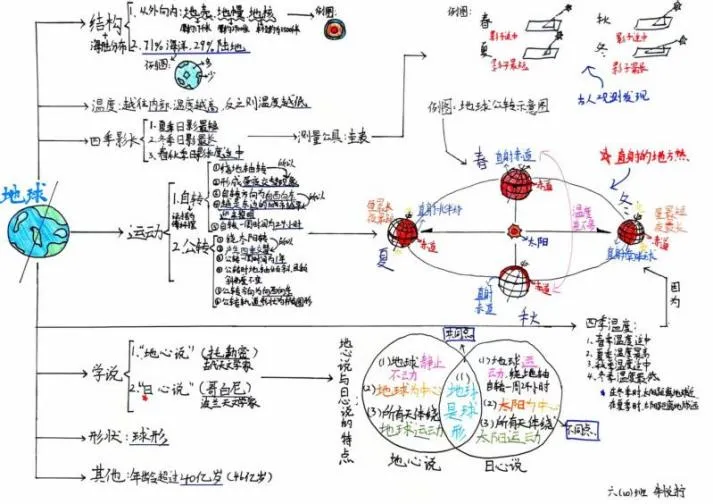 地球
结构
海陆分布
1. 从外向内: 地壳、地幔、地核
例图:
2. 71%海洋, 29%陆地。
例图:
多
少
温度: 越往内部, 温度越高, 反之则温度越低。
四季影长
1. 夏季日影最短
2. 冬季日影最长
3. 春秋季日影长度适中
测量工具: 圭表
例图:
春
影子适中
秋
影子适中
夏
影子最短
冬
影子最长
古人观测发现
运动
1. 自转
①绕地轴转
②形成昼夜交替现象
③自转方向为自西向东
⑤自转一周时间为24小时
2. 公转
①绕太阳转
②产生四季变化
③公转一周时间为1年
④公转时地轴
⑤公转方向为自西向东
⑥公转轨道形状为椭圆形
例图: 地球公转示意图
直射的地方热
春
直射赤道
赤道
夏
直射北半球
赤道
太阳
温度
冬
直射南半球
赤道
秋
直射赤道
赤道
因为
四季温度:
1. 春季温度适中
2. 夏季温度最高
3. 秋季温度适中
4. 冬季温度最低
学说
1. "地心说" (托勒密)
古代天文学家
2. "日心说" (哥白尼)
波兰天文学家
地心说与日心说的特点
共同点
(1) 地球静止不动
(2) 地球为中心
(3) 所有天体绕地球运动
地心说
(1) 地球是球形
(1) 地球运动, 绕地轴自转一周24小时
(2) 太阳为中心
(3) 所有天体绕太阳运动
日心说
不同点
形状: 球形
其他: 年龄超过40亿岁 (46亿岁)